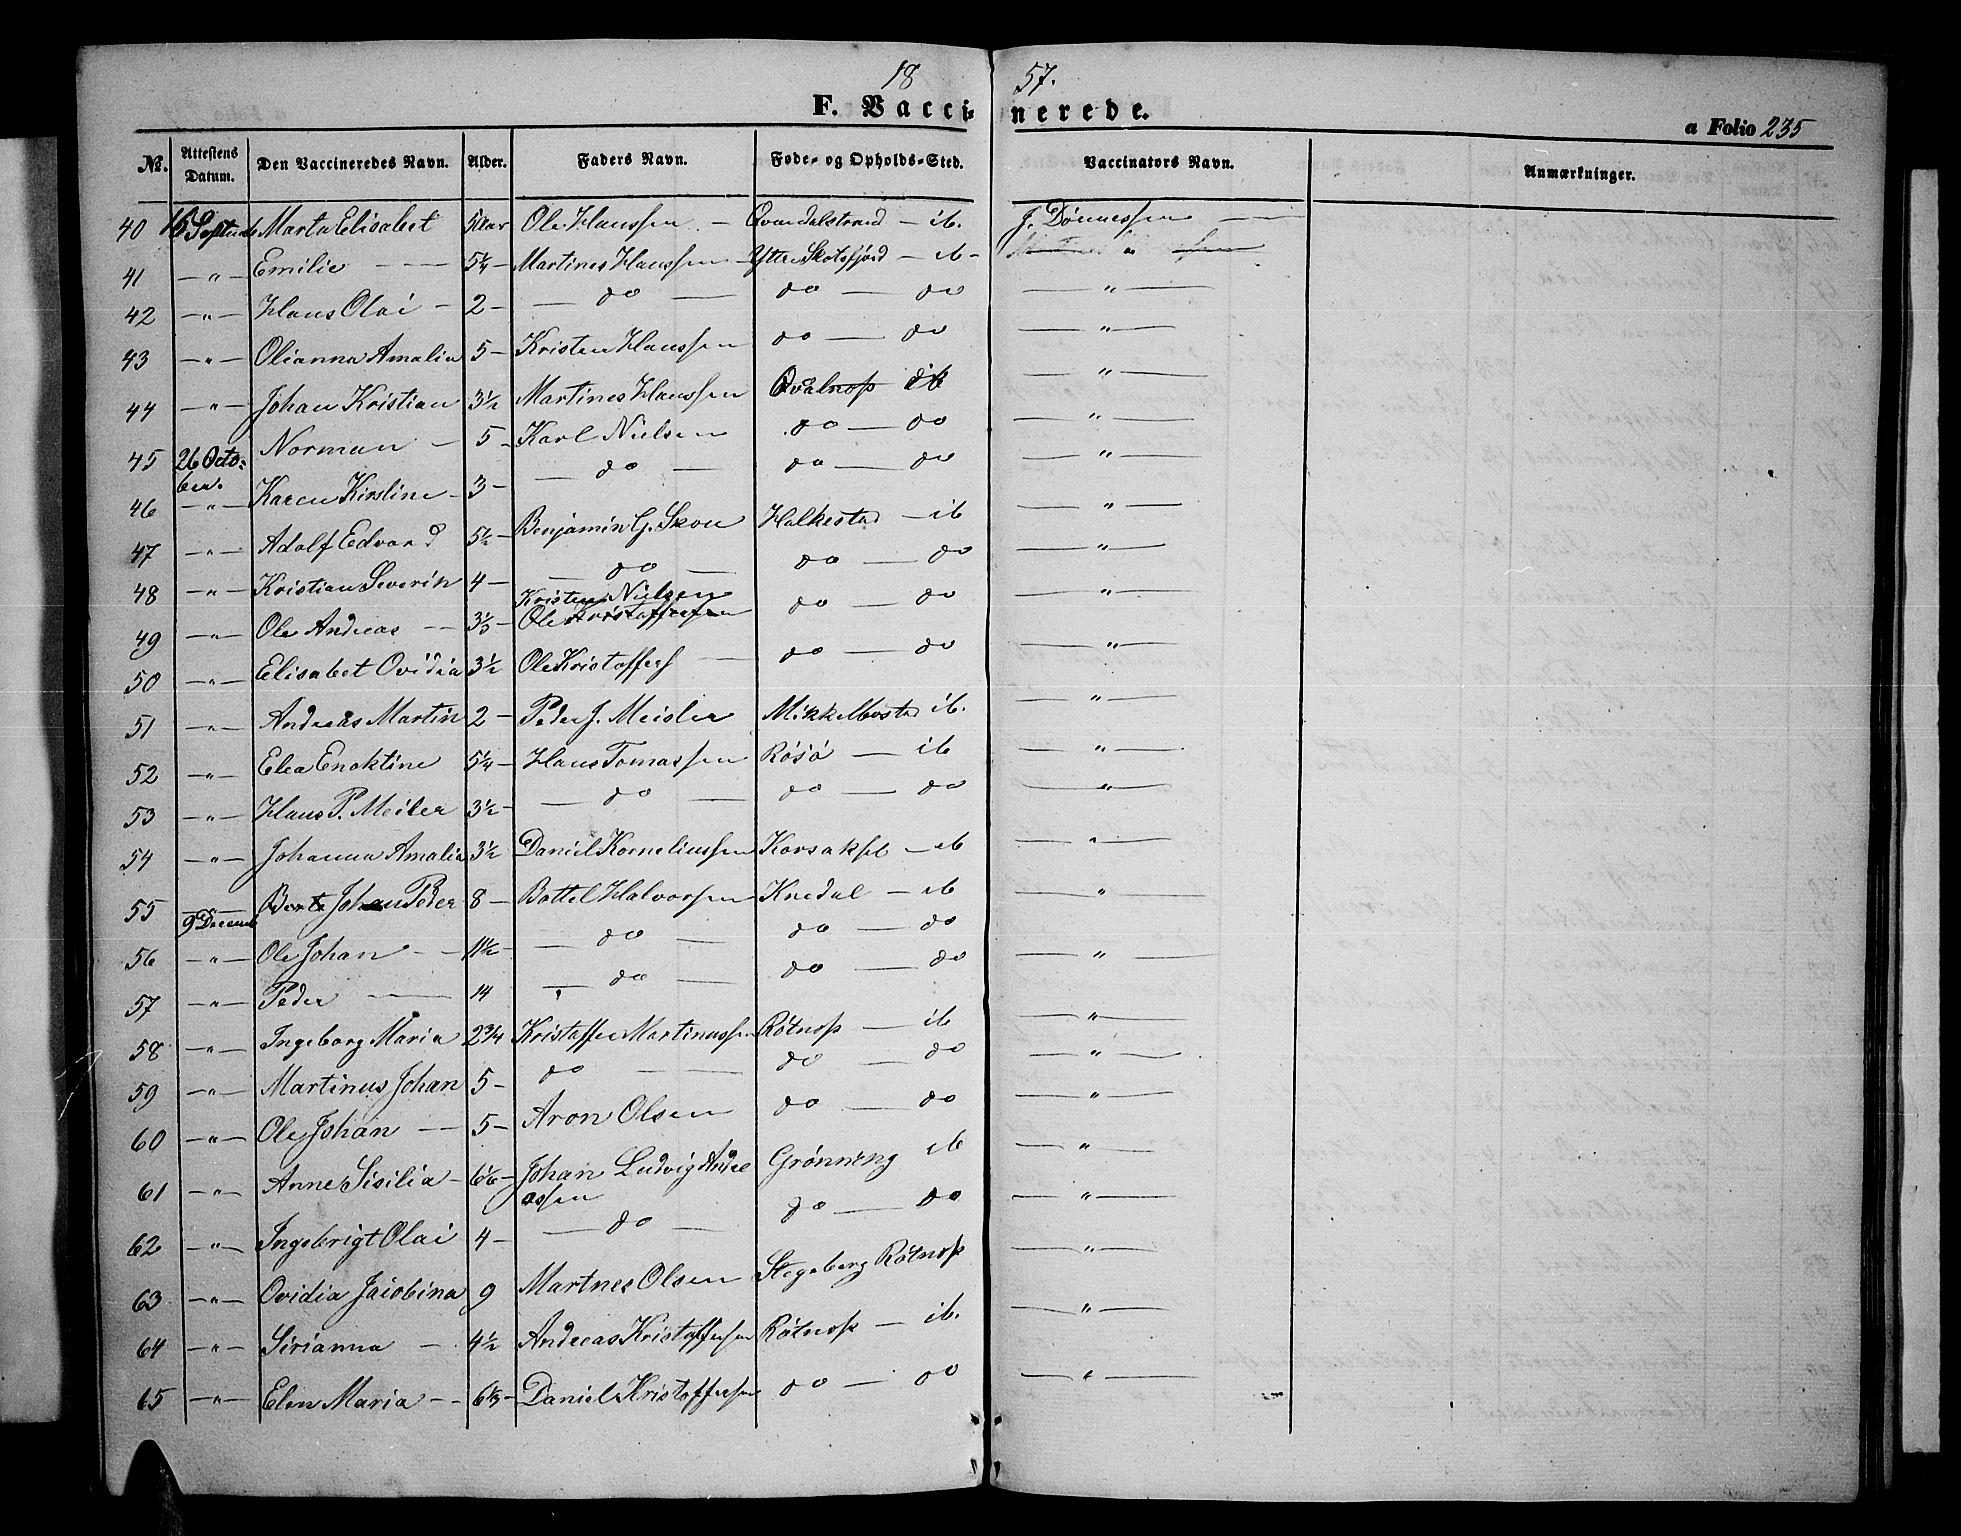 18 57.
F. Vaccinerede.
a Folio 235
No. Attestens Datum. Den Vaccineredes Navn. Alder. Faders Navn. Føde- og Opholds-Sted. Vaccinators Navn. Anmærkninger.
40 16 Septemb Marta Elisabet 5 Aar Ole Hanssen — Qvandalstrand — ib. J. Dönnessen —
41 —"— Emilie — 5 1/4 — Martines Hanssen — Yttre Skotsfjord — ib — "
42 —"— Hans Olai — 2 — — do — do — do —"—
43 —"— Olianna Amalia 5 — Kristen Hanssen do — do —"—
44 —"— Johan Kristian 3 1/2 Martines Hanssen Qvalnæs ib —"—
45 26 Octo- Norman — 5 — Karl Nielsen do — do —"—
ber.
46 —"— Karen Kirstine — 3 — — do — do — do —"—
47 —"— Adolf Edvard 5 1/2 — Benjamin G. Skou Halkestad — ib —"—
48 —"— Kristian Severin 4 — — do — do — do —"—
49 —"— Ole Andreas — 3 1/3 Kristen Nielsen do — do —"—
Ole Kristoffersen
50 —"— Elisabet Ovidia 3 1/2 Ole Kristoffers — do — do —"—
51 —"— Andreas Martin 2 — Peder J. Meisler Mikkelbostad ib. —"—
52 —"— Elea Enoktine 5 1/4 — Hans Tomassen Rösö — ib —"—
53 —"— Hans P. Meiler 3 1/2 — — do — do — do —"—
54 —"— Johanna Amalia 3 1/2 Daniel Korneliussen Korsaksel — ib —"—
55 9 Decemb Johan Peder 8 — Bottel Halvorsen Knedal — ib —"—
56 —"— Ole Johan — 11 1/2 — — do — do — do —"—
57 —"— Peder — 14 — do — do — do
58 —"— Ingeborg Maria 2 3/4 Kristoffer Martinussen Rötnæs — ib —"—
59 —"— Martinus Johan 5 — do — do — do —"—
60 —"— Ole Johan — 5 — Aron Olsen do — do —"—
61 —"— Anne Sisilia — 6 1/6 — Johan Ludvig Andre Grönning ib —"—
assen
62 —"— Ingebrigt Olai 4 — — do — do — do —"—
63 —"— Ovidia Jaiobina 9 Martnes Olsen Stegeberg Rötnæs —"—
64 —"— Sirianna — 4 1/2 Andreas Kristoffersen Rötnæs — ib. —"—
65 —"— Elen Maria — 6 1/3 — Daniel Kristoffersen do — do —"—